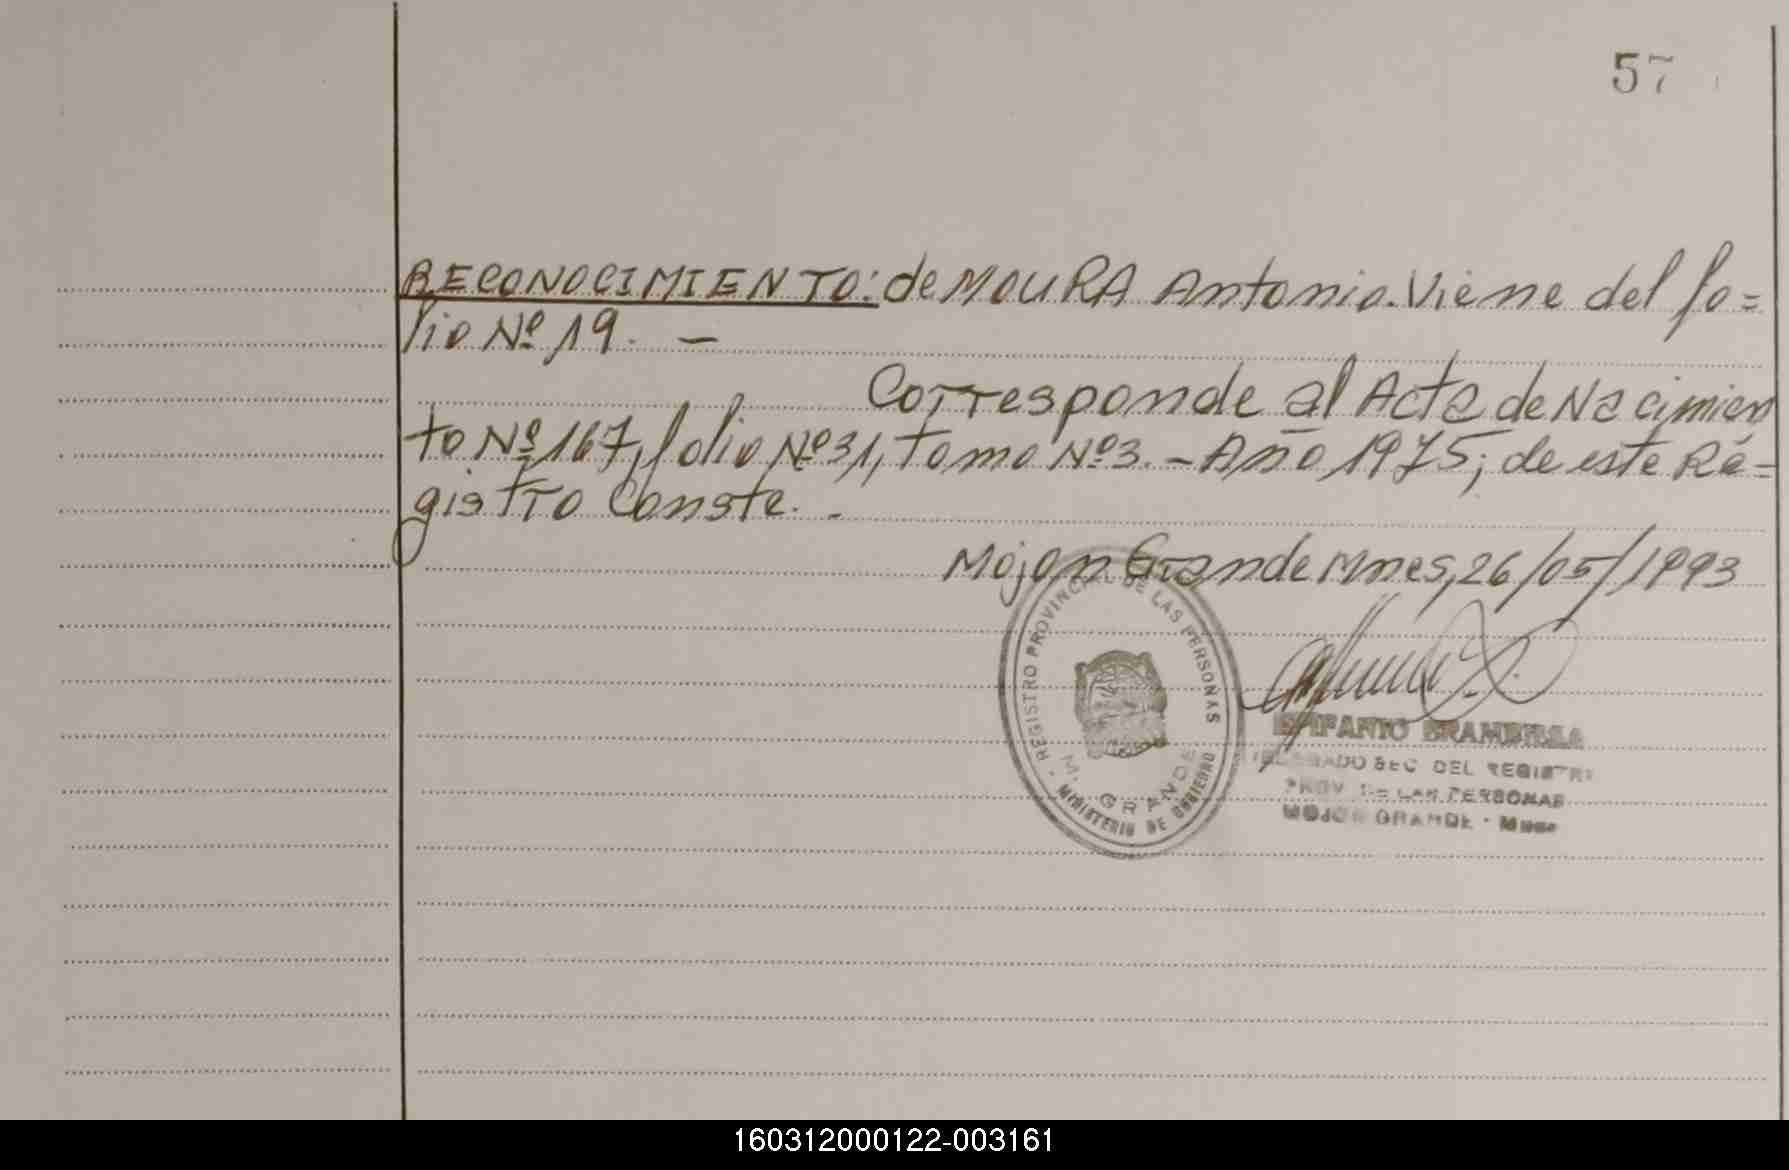 57
RECONOCIMIENTO: de MOURA Antonio. Viene del fo=
lio Nº 19. —
Corresponde al Acta de Nacimien
to Nº 167, folio Nº 31, Tomo Nº 3. - Año 1975; de este Re=
gistro Conste. -
Mojon Grande Mnes, 26/05/1993
REGISTRO PROVINCIAL DE LAS PERSONAS
M. GRANDE
MINISTERIO DE GOBIERNO
EPIFANIO BRAMBILLA
DELEGADO SEC. DEL REGISTRO
PROV. DE LAS PERSONAS
MOJON GRANDE - Mnes
160312000122-003161